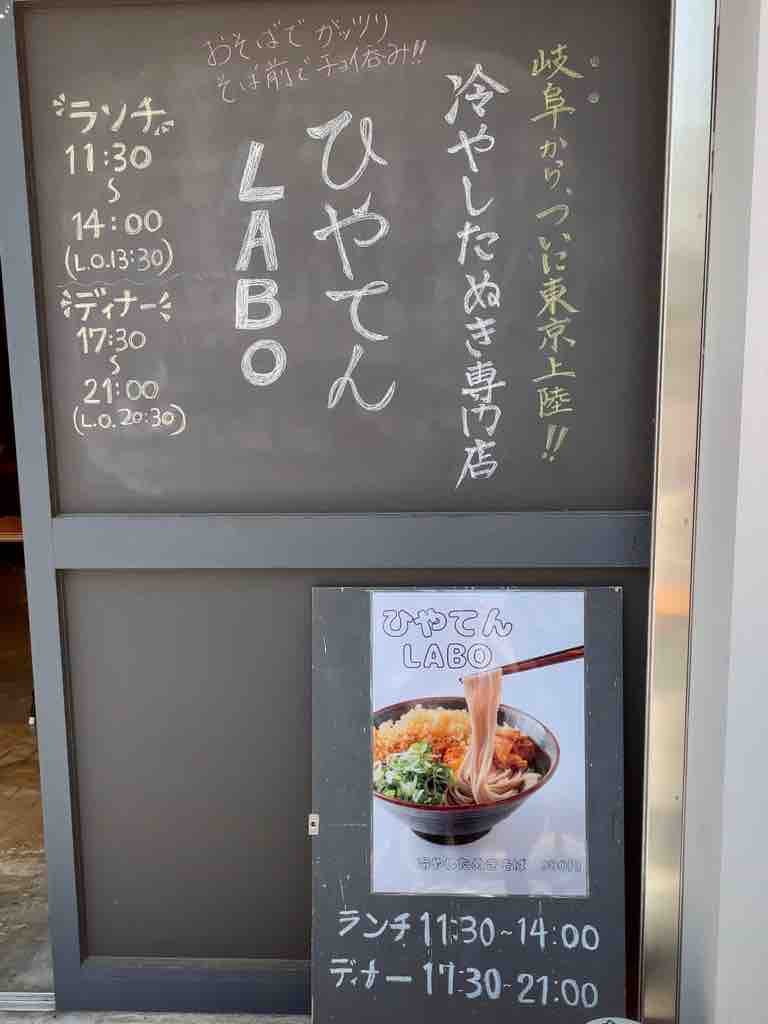 岐阜から、ついに東京上陸!!
冷やしたぬき専門店
おそばでガッツリ
そば前でチョイ呑み!!
ひやてん
LABO
ランチ
11:30
~
14:00
(L.O.13:30)
ディナー
17:30
~
21:00
(L.O.20:30)
ひやてん
LABO
冷やしたぬきそば
ランチ 11:30~14:00
ディナー 17:30~21:00